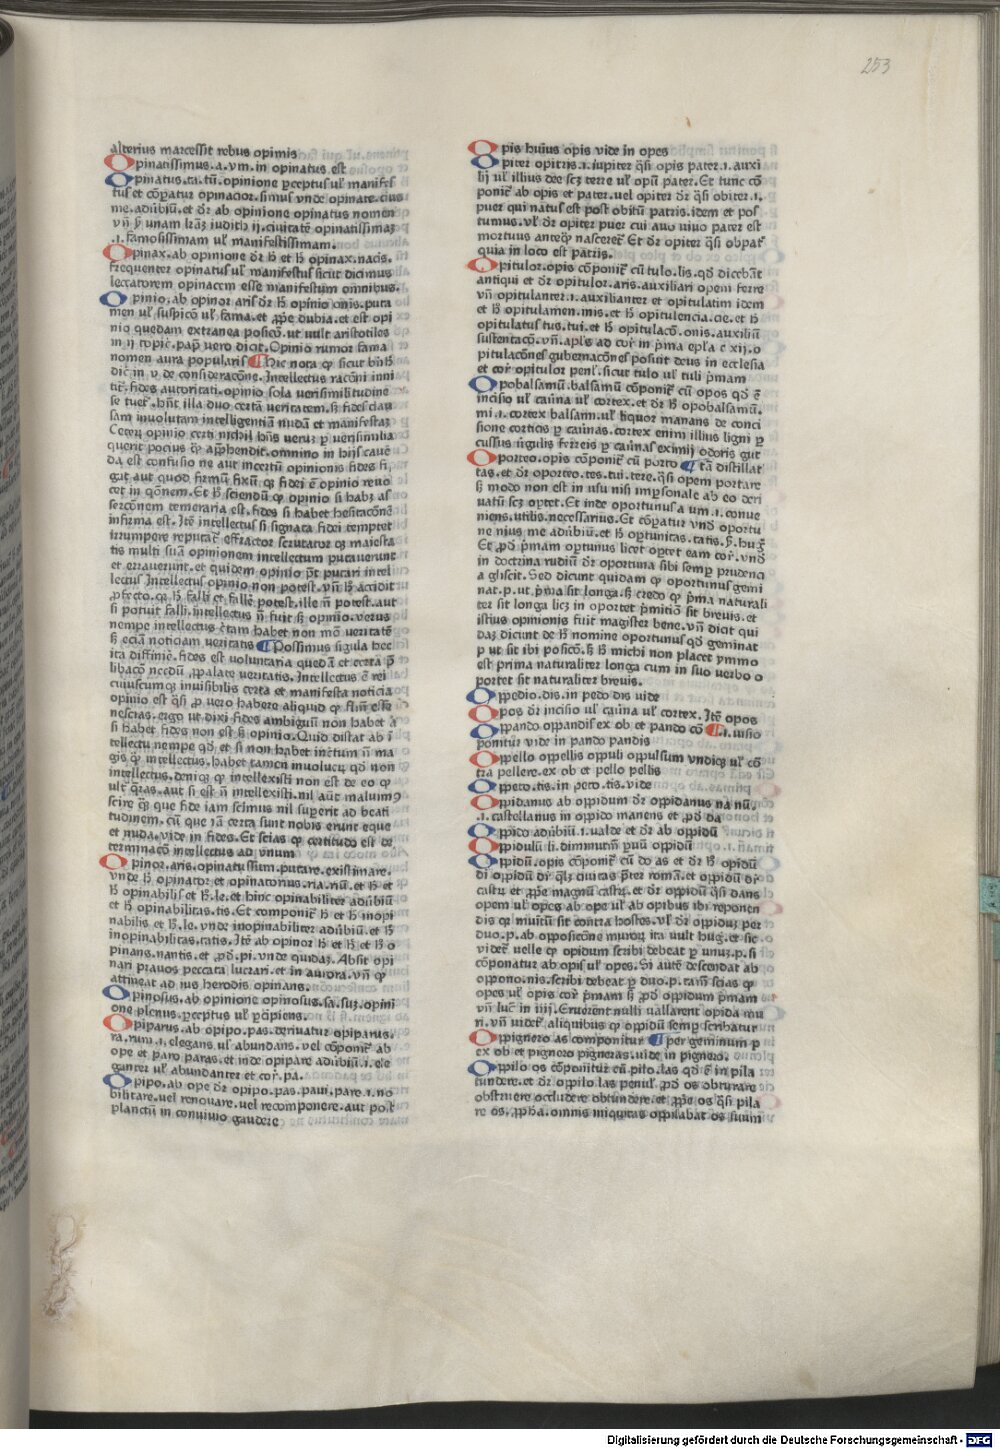 253
alterius marcessit rebus opimis
Opinatissimus.a.vm.in opinatus est
Opinatus.ta.tū.opinione ꝑceptus ul̕ manifes
tus et cōꝑatur opinacior.simus vnde opinate.cius
me.adūbiū.et dr̄ ab opinione opinatus nomen
.i.famosissimam ul̕ manifestissimam.
Opinax.ab opinione dr̄ h̄ et h̄ opinax.nacis.
frequenter opinatus ul̕ manifestus sicut dicimus
leccatorem opinacem esse manifestum omnibus.
Opinio.ab opinor aris dr̄ h̄ opinio onis.puta
men ul̕ suspicō ul̕ fama.et ꝓpe dubia.et est opi
nio quedam extranea posicō.ut uult aristotiles
in ij topic̄.pap̄ vero dicit.Opinio rumor fama
nomen aura popularis Hic nota qꝫ sicut bn̄h
dic̄ in v de consideracōne.Intellectus racōni inni
tit̄.fides autoritati.opinio sola verisimilitudine
se tuet̄.hn̄t illa duo certā veritatem.sꝫ fides clau
sam inuolutam intelligentia nudā et manifestaꝫ
Ceterꝫ opinio certi nichil hn̄s veruꝫ ꝑ verisimilia
querit pocius qꝫ app̄hendit.omnino in hijs cauē
da est confusio ne aut incertū opinionis fides fi
gat aut quod firmū fixū qꝫ fidei ē opinio reuo
cet in q̄onem.Et h̄ sciendū qꝫ opinio si habꝫ as
sercōnem temeraria est.fides si habet hesitacōnē
infirma est.Itē intellectus si signata fidei temptet
irrumpere reputat̄ effractor scrutator qꝫ maiesta
tis multi suā opinionem intellectum putauerunt
et errauerunt.et quidem opinio p̄t putari intel
lectus Intellectus opinio non potest.vn̄ h̄ accidit
ꝓfecto.qꝫ h̄ falli et fallē potest.ille n̄ potest.aut
si potuit falli.intellectus n̄ fuit sꝫ opinio.verus
nempe intellectus c̄tam habet non mō veritatē
sꝫ eciā noticiam veritatis Possimus sigula hec
ita diffinīe.fides est voluntaria quedā et certa p̄
libacō necdū ꝓpalate veritatis.Intellectus ē rei
cuiuscumqꝫ inuisibilis certa et manifesta noticia
opinio est q̄si ꝓ vero habere aliquod qꝫ fl̄m esse
nescias.ergo ut dixi fides ambiguū non habet a
si habet fides non est sꝫ opinio.Quid distat ab ī
tellectu nempe qd̄ et si non habet inc̄tum n̄ ma
gis qꝫ intellectus.habet tamen inuolucꝝ qd̄ non
intellectus.deniqꝫ qꝫ intellexisti non est de eo qꝫ
ult̄ q̄ras.aut si est n̄ intellexisti.nil aūt malumꝰ
scire q̄ꝫ que fide iam scimus nil suꝑerit ad beati
tudinem.cū que iā certa sunt nobis erunt eque
et nuda.vide in fides.Et scias qꝫ certitudo est de
terminacō intellectus ad vnum
Opinor.aris.opinatus sum.putare.existimare.
vnde h̄ opinator et opinatorius.ria.riū.et h̄ et
h̄ opinabilis et h̄.le.et hinc opinabiliter adūbiū
et h̄ opinabilitas.tis.Et componit̄ h̄ et h̄ inopi
nabilis et h̄.le.vnde inopinabiliter adūbiū.et h̄
inopinabilitas.tatis.Itē ab opinor h̄ et h̄ et h̄ o
pinans.nantis.et ,ꝓd.pi.vnde quidaꝫ.Absit opi
nari prauos peccata lucrari.et in aurora.vn̄ qꝫ
attineat ad ius herodis opinans.
Opinosus.ab opinione opinosus.sa.suꝫ.opini
one plenus.ꝑceptus ul̕ ꝑcipiens.
Opiparus.ab opipo.pas.deriuatur opiparus.
ra.rum.i.elegans ul̕ abundans.vel cōponit̄ ab
ope et paro paras.et inde opipare adūbiū.i.ele
ganter ul̕ abundanter et cor̄.pa.
Opipo.ab ope dr̄ opipo.pas.paui.pare.i.no
bilitare.uel renouare.uel recomponere.aut post
planctū in conuiuio gaudere
Opis huius opis vide in opes
Opiter opitris.i.iupiter q̄si opis pater.i.auxi
lij ul̕ illius dee scꝫ terre ul̕ opū pater.Et tunc cō
ponit̄ ab opis et pater.uel opiter dr̄ q̄si obiter.i.
puer qui natus est post obitū patris.idem et pos
tumus.vl̕ dr̄ opiter puer cui auo uiuo pater est
mortuus anteqꝫ nasceret̄ Et dr̄ opiter q̄si obpat̄
quia in loco est patris.
Opitulor.opis cōponit̄ cū tulo.lis.qd̄ dicebāt
antiqui et dr̄ opitulor.aris.auxiliari opem ferre
vn̄ opitulanter.i.auxilianter et opitulatim idem
et h̄ opitulamen.inis.et h̄ opitulencia.cie.et h̄
opitulatus tus.tui.et h̄ opitulacō.onis.auxiliū
sustentacō.vn̄.apl̄s ad cor̄ in p̄ma epl̄a c xij.o
pitulacōnes gubernacōnes posuit deus in ecclesia
et cor̄ opitulor penl̄.sicut tulo ul̕ tuli p̄mam
Opobalsamū.balsamū cōponit̄ cū opos qd̄ ē
incisio ul̕ cauūa ul̕ cortex.et dr̄ h̄ opobalsamū.
mi.i.cortex balsam.ul̕ liquor manans de conci
sione corticis ꝑ cauūas.cortex enim illius ligni ꝑ
cussus ūgulis ferreis ꝑ cauūas eximij odoris gut
Oporteo.opis cōponit̄ cū porto tā distillat
tas.et dr̄ oporteo.tes.tui.tere.q̄si opem portare
sꝫ modo non est in usu nisi imꝑsonale ab eo deri
uatū scꝫ oꝑtet.Et inde oportunus a um.i.conue
niens.utilis.necessarius.Et cōꝑatur vnd̄ oportu
ne nius me adūbiū.et h̄ optunitas.tatis.
Et ,ꝓd p̄mam optunus licet oꝑtet eam cor̄.vnd̄
in doctrina rudiū dr̄ oportuna sibi semꝑ prudenci
a gliscit.Sed dicunt quidam qꝫ oportunus gemi
nat.p.ut p̄ma sit longa.sꝫ credo qꝫ p̄ma naturali
ter sit longa licꝫ in oportet p̄mitiō sit breuis.et
istius opinionis fuit magister bene.vn̄ dicit qui
daꝫ dicunt de h̄ nomine oportunus qd̄ geminat
p ut sit ibi posicō.sꝫ h̄ michi non placet ymmo
est prima naturaliter longa cum in suo verbo o
portet sit naturaliter breuis.
Oppedio.dis.in pedo dis vide
Opos dr̄ incisio ul̕ cauūa ul̕ cortex.Itē opos
Oppando oppandis ex ob et pando cō .i.uisio
ponitur vide in pando pandis
Oppello oppellis oppuli oppulsum vndiqꝫ ul̕ cō
tra pellere.ex ob et pello pellis
Oppeto.tis.in peto.tis.vide
Oppidanus ab oppidum dr̄ oppidanus na nū.
.i.castellanus in oppido manens et ,ꝓd da
Oppido adūbiū.i.ualde et dr̄ ab oppidū
Oppidulū li.diminutū ꝑuū oppidū
Oppidū.opis cōponit̄ cū do as et dr̄ h̄ opidū
di oppidū dr̄ ql̄ꝫ ciuitas p̄ter romā.et oppidū dr̄
castꝝ et ꝓpe magnū castꝝ.et dr̄ oppidū q̄si dans
opem ul̕ opes ab ope ul̕ ab opibus ibi reponen
dis qꝫ muitū sit contra hostes.vl̕ dr̄ oppiduꝫ per
duo.p.ab opposicōne muroꝝ ita uult huḡ.et sic
videt̄ uelle qꝫ opidum scribi debeat ꝑ unuꝫ.p.si
cōponatur ab opis ul̕ opes.Si autē descendat ab
oppono.nis.scribi debeat ꝑ duo.p.tam̄ scias qꝫ
opes ul̕ opis cor̄ p̄mam sꝫ ,ꝓd oppidum p̄mam
vn̄ luc̄ in iiij.Eruerent nulli uallarent opida mu
ri.vn̄ videt̄ aliquibus qꝫ oppidū semꝑ scribatur
Oppignero as componitur per geminum p
ex ob et pignero pigneras.uide in pignero.
Oppilo os cōponitur cū pilo.las qd̄ ē in pila
tundere.et dr̄ oppilo.las penul̕ ,ꝓd os obturare
obstruere occludere obtundere.et ꝓpe os q̄si pila
re os.ꝓph̄a.omnis iniquitas oppilabat os suum
Digitalisierung gefördert durch die Deutsche Forschungsgemeinschaft - DFG